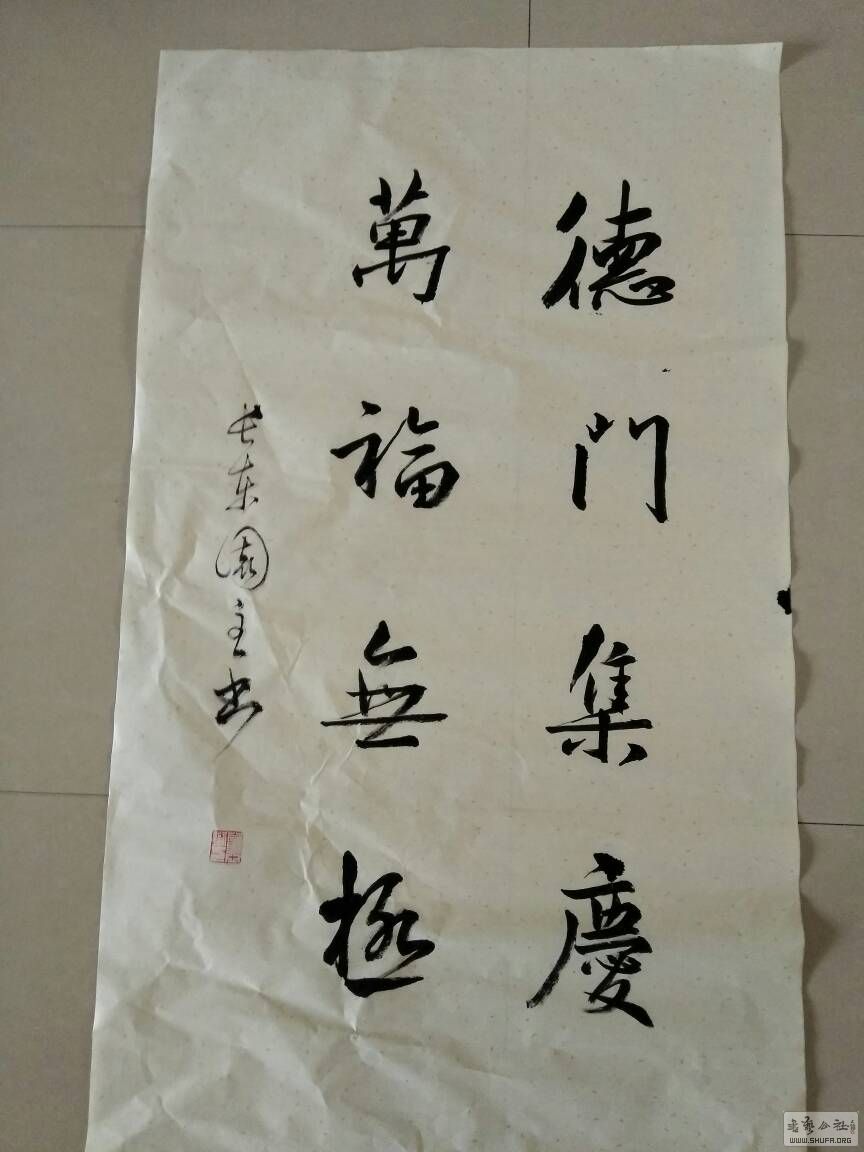 德門集慶
萬福無極
长东園主书
书艺公社
WWW.SHUFA.ORG